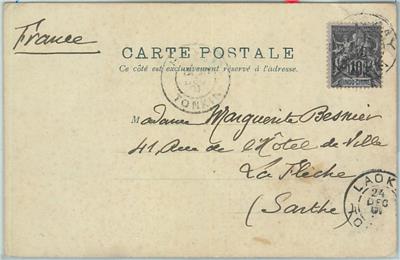 France
CARTE POSTALE
Ce côté est exclusivement réservé à l'adresse.
10
INDO-CHINE
TONKIN
M adame Marguerite Besnier
41 Rue de l'Hôtel de Ville
La Flèche
(Sarthe)
LAOKAY
24
DEC
01